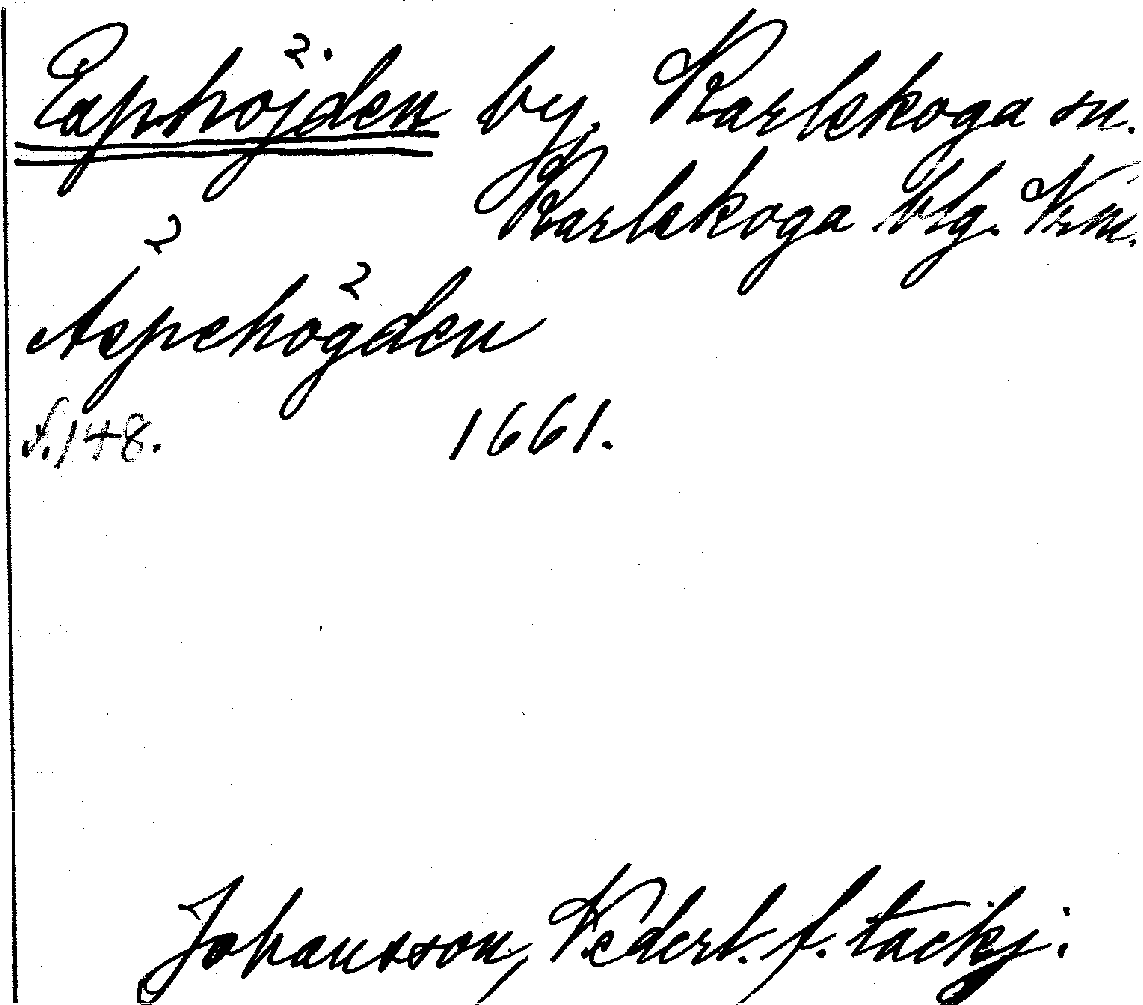 Esphöjden by, Karlskoga sn.
Karlskoga blg. Vrm.
Äspehögden
s. 148. 1661.
Johansson, Vedert. f. tackj.